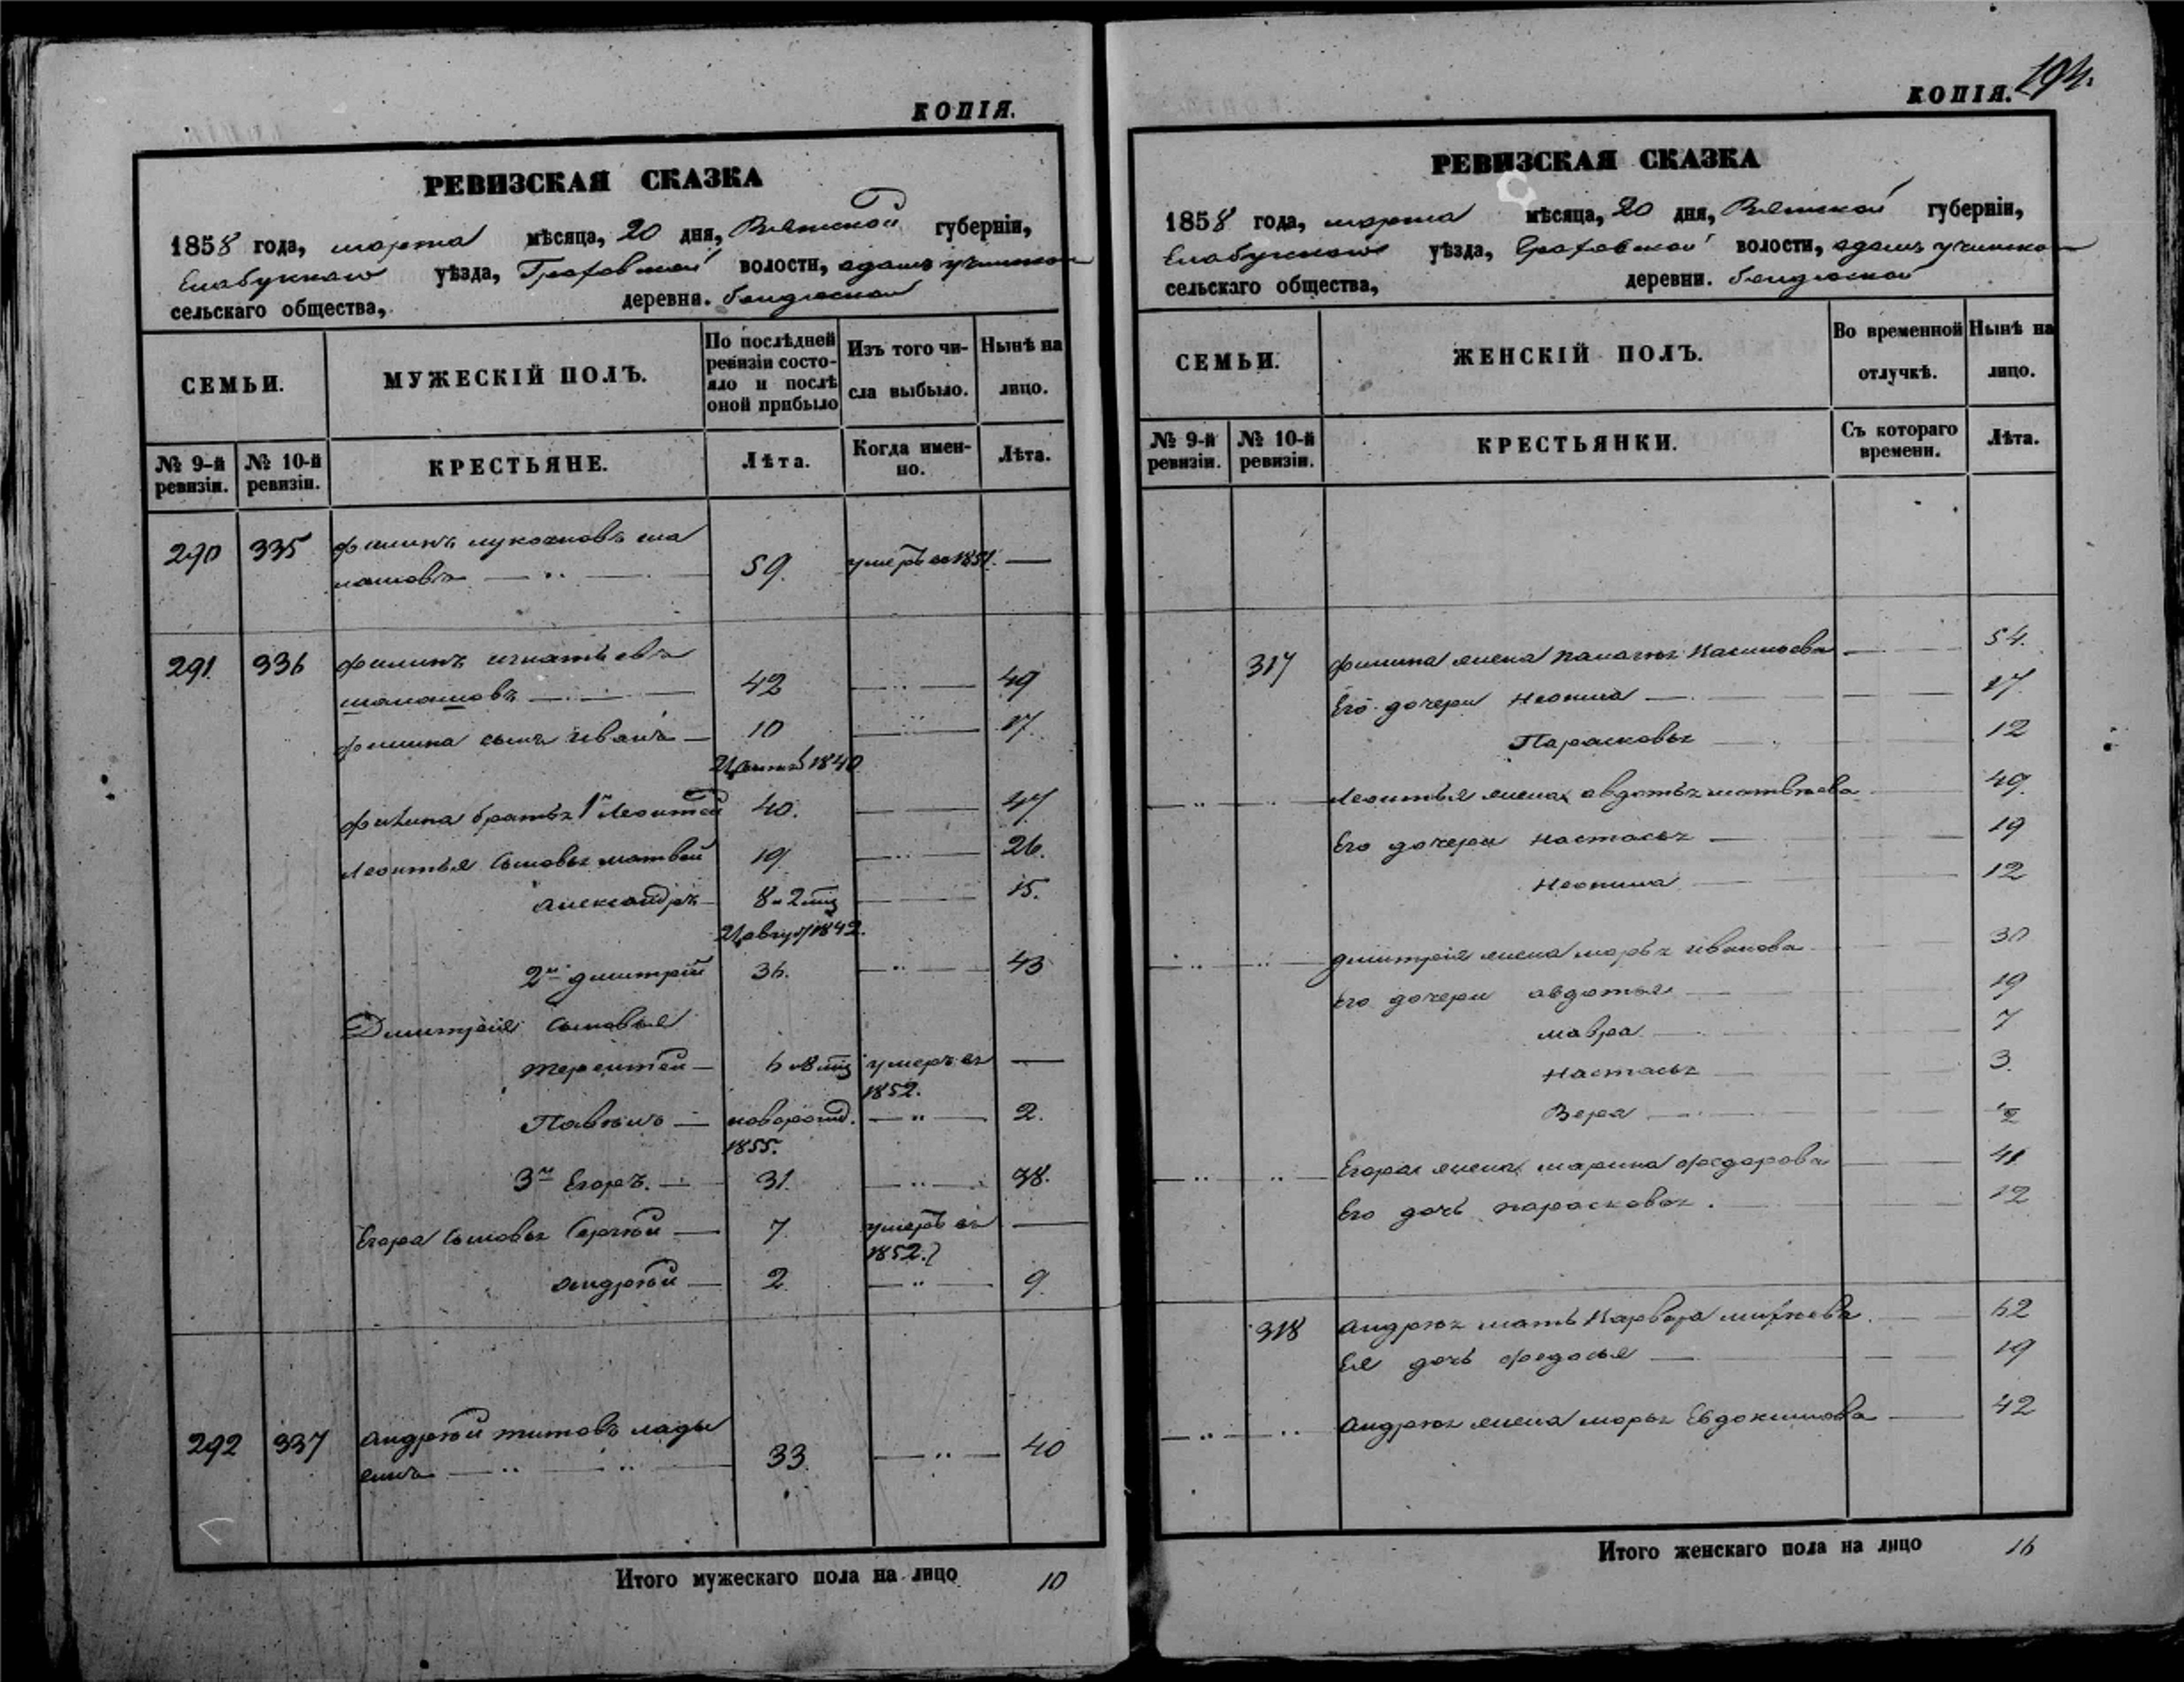 КОПІЯ.
РЕВИЗСКАЯ СКАЗКА
1858 года, марта мѣсяца, 20 дня, Вятской губерніи,
Елабужскаго уѣзда, Граховской волости,
сельскаго общества, деревня.
СЕМЬИ.
МУЖЕСКІЙ ПОЛЪ.
По послѣдней ревизіи состояло и послѣ оной прибыло
Изъ того числа выбыло.
Нынѣ на лицо.
№ 9-й ревизіи.
№ 10-й ревизіи.
КРЕСТЬЯНЕ.
Лѣта.
Когда именно.
Лѣта.
290 335 Филипъ
59. умеръ въ 1851. —
291. 336 Филипъ игнатьевъ
шалашовъ — 42 — 49
Филипа сынъ иванъ — 10 — 17.
1840
Филипа братья 1й Леонтей 40. — 47
Леонтья сыновья матвей 19. — 26.
александръ — 8 и 2 мц — 15.
1842.
2й дмитрій 36. — 43
Дмитрія сыновья
терентей — 6 и 8 мц умеръ въ 1852. —
Павелъ — новорожд. 1855. — 2.
3й Егоръ. — 31. — 38.
Егора сыновья Сергѣй — 7. умеръ въ 1852. —
андрѣй — 2. — 9.
292 337 андрѣй титовъ лады
гинъ — 33. — 40
Итого мужескаго пола на лицо 10
КОПІЯ. 194.
РЕВИЗСКАЯ СКАЗКА
1858 года, марта мѣсяца, 20 дня, Вятской губерніи,
Елабужскаго уѣзда, Граховской волости,
сельскаго общества, деревни.
СЕМЬИ.
ЖЕНСКІЙ ПОЛЪ.
Во временной отлучкѣ.
Нынѣ на лицо.
№ 9-й ревизіи.
№ 10-й ревизіи.
КРЕСТЬЯНКИ.
Съ котораго времени.
Лѣта.
317 Филипа жена — 54.
Его дочери Неонила — 17.
Парасковья — 12
Леонтья жена авдотья матвѣева — 49.
Его дочери настасья — 19
неонила — 12
дмитрія жена марья иванова — 30
его дочери авдотья — 19
мавра — 7
настасья — 3.
Вера —
Егора жена марина федорова — 41.
Его дочь парасковья. — 12
318 андрѣя мать Варвара — 62
Ея дочь федосья — 19
андрѣя жена марья Евдокимова — 42
Итого женскаго пола на лицо 16